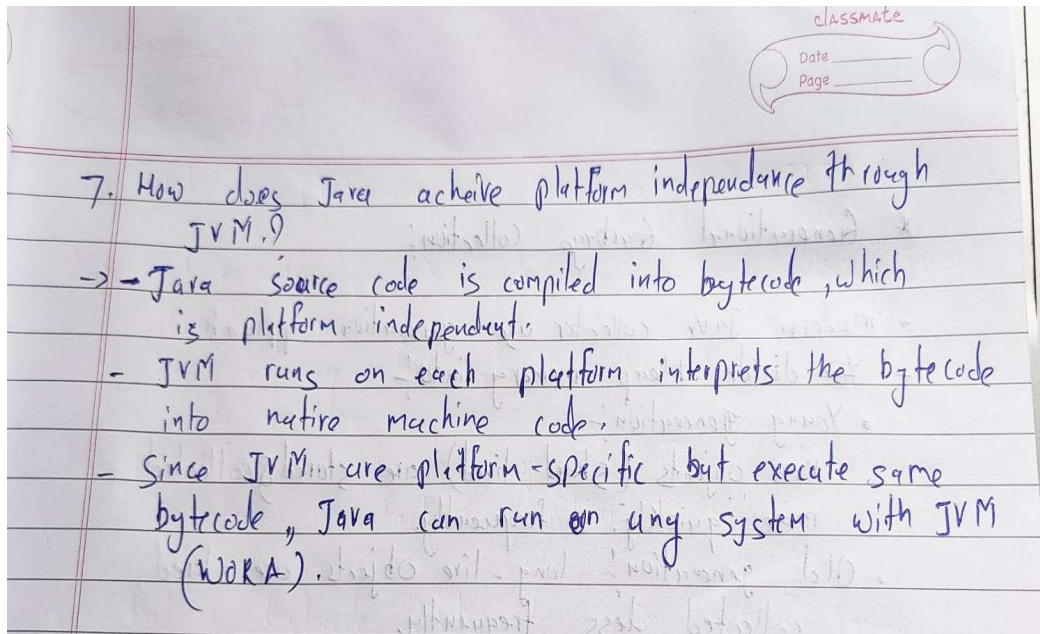 classmate
Date
Page
7. How does Java acheive platform independance through
JVM.?
-> - Java source code is compiled into bytecode, which
is platform independent.
- JVM runs on each platform interprets the bytecode
into native machine code.
- Since JVM are platform-specific but execute same
bytecode, Java can run on any system with JVM
(WORA).